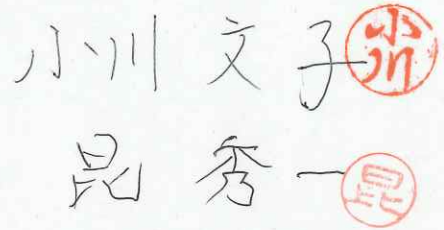 小川 文子 小川
昆 秀一 昆